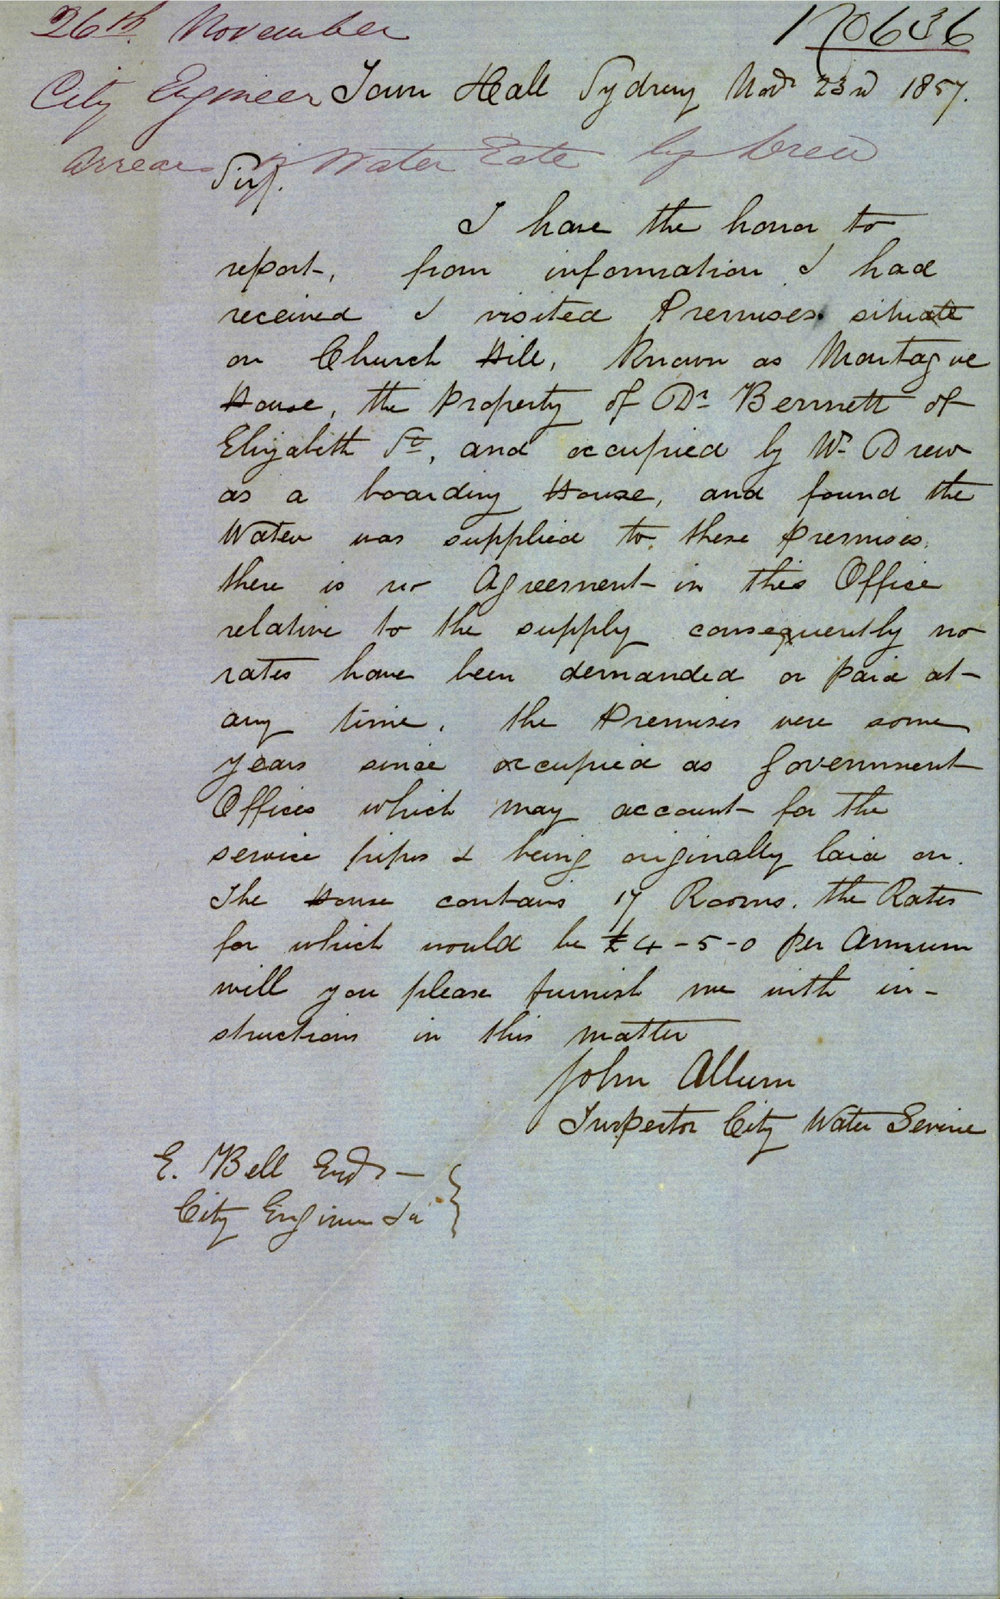 26th November
No 636
City Engineer
Town Hall Sydney Novr 23rd 1857.
Arrears of Water Rate by Drew
Sir,
I have the honor to
report, from information I had
received I visited Premises situate
on Church Hill, Known as Montague
House, the Property of Dr Bennett of
Elizabeth St, and occupied by Wm Drew
as a boarding House, and found the
Water was supplied to these premises.
there is no Agreement in this Office
relative to the supply consequently no
rates have been demanded or paid at
any time. the Premises were some
years since occupied as Government
Offices which may account for the
service pipes & being originally laid on.
The House contains 17 Rooms. the Rates
for which would be £4-5-0 per Annum
will you please furnish me with in-
structions in this matter
John Allum
Inspector City Water Service
E. Bell
City Engineer &c